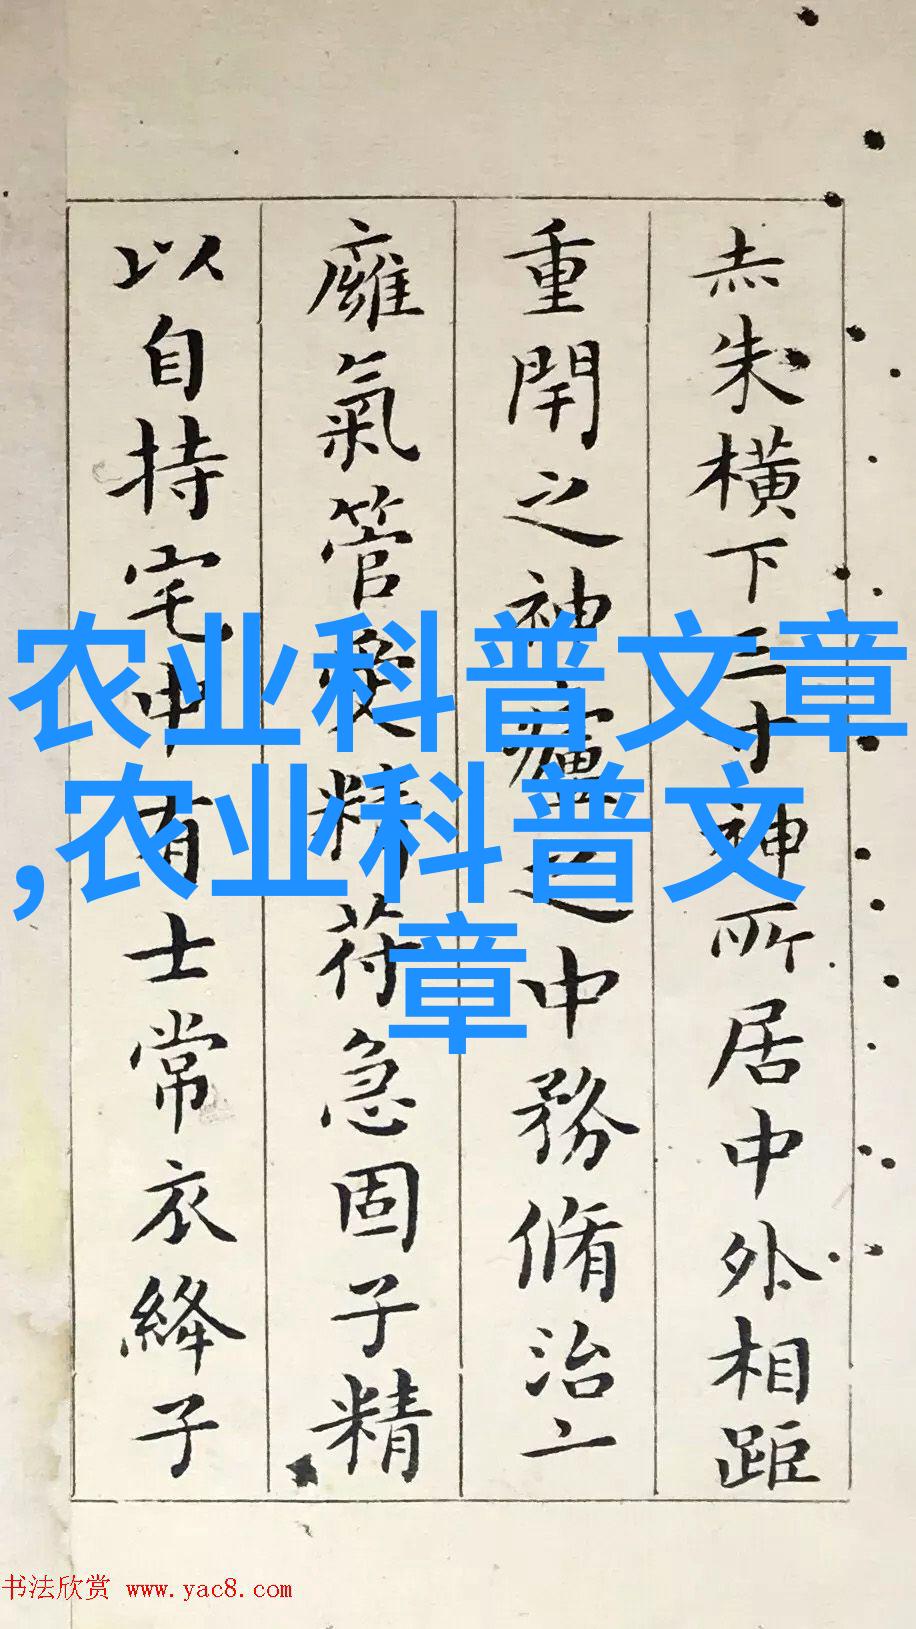 赤朱橫下三寸神所居中外相距
重閇之神廬之中務脩治
廱氣管受精苻急固子精
以自持宅中有士常衣絳子
农业科普文章
,农业科普文
章
书法欣赏 www.yac8.com